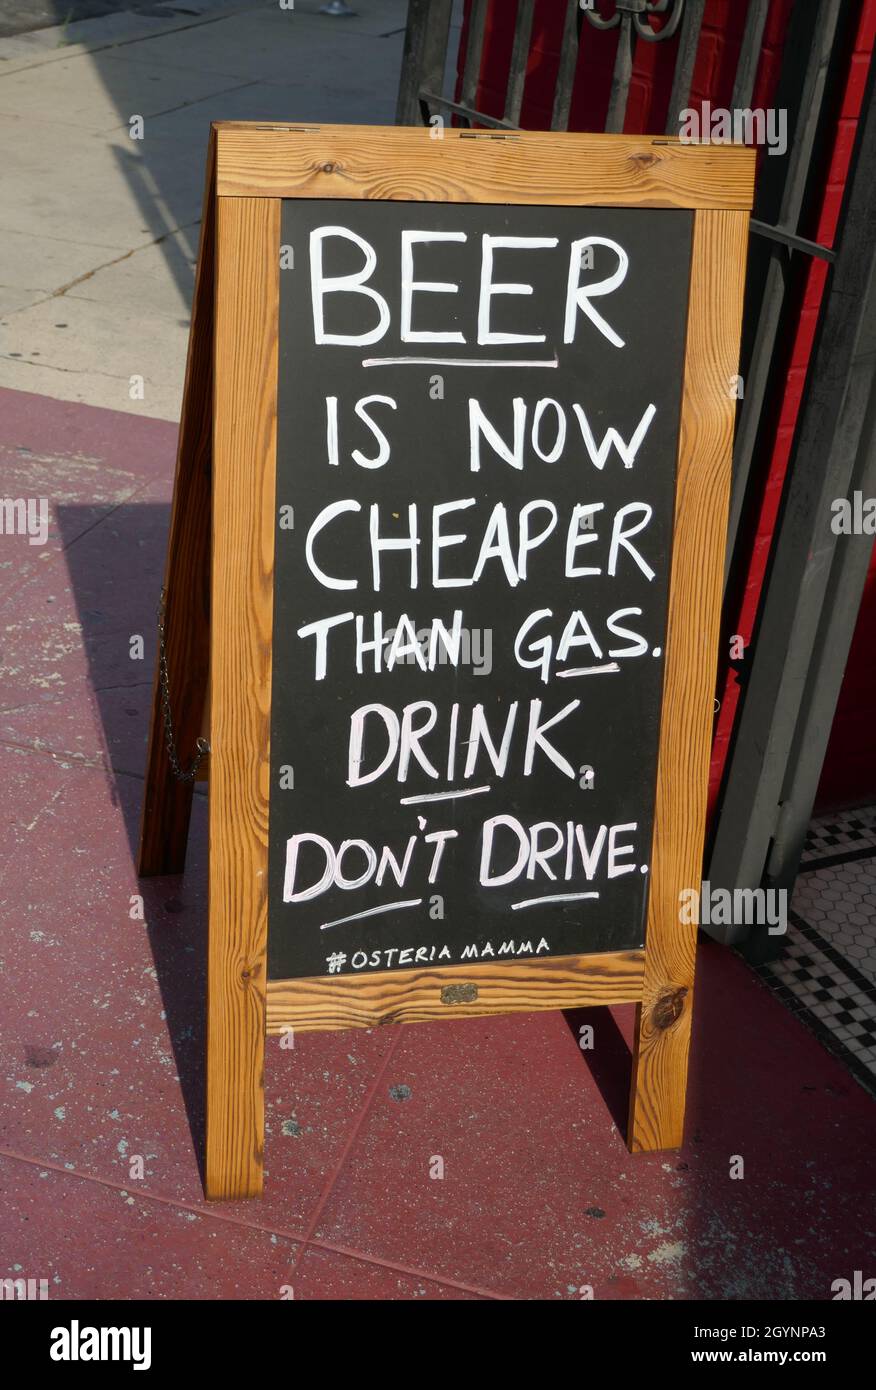 BEER
IS NOW
CHEAPER
THAN GAS.
DRINK.
DON'T DRIVE.
#OSTERIA MAMMA
alamy
Image ID: 2GYNPA3
www.alamy.com